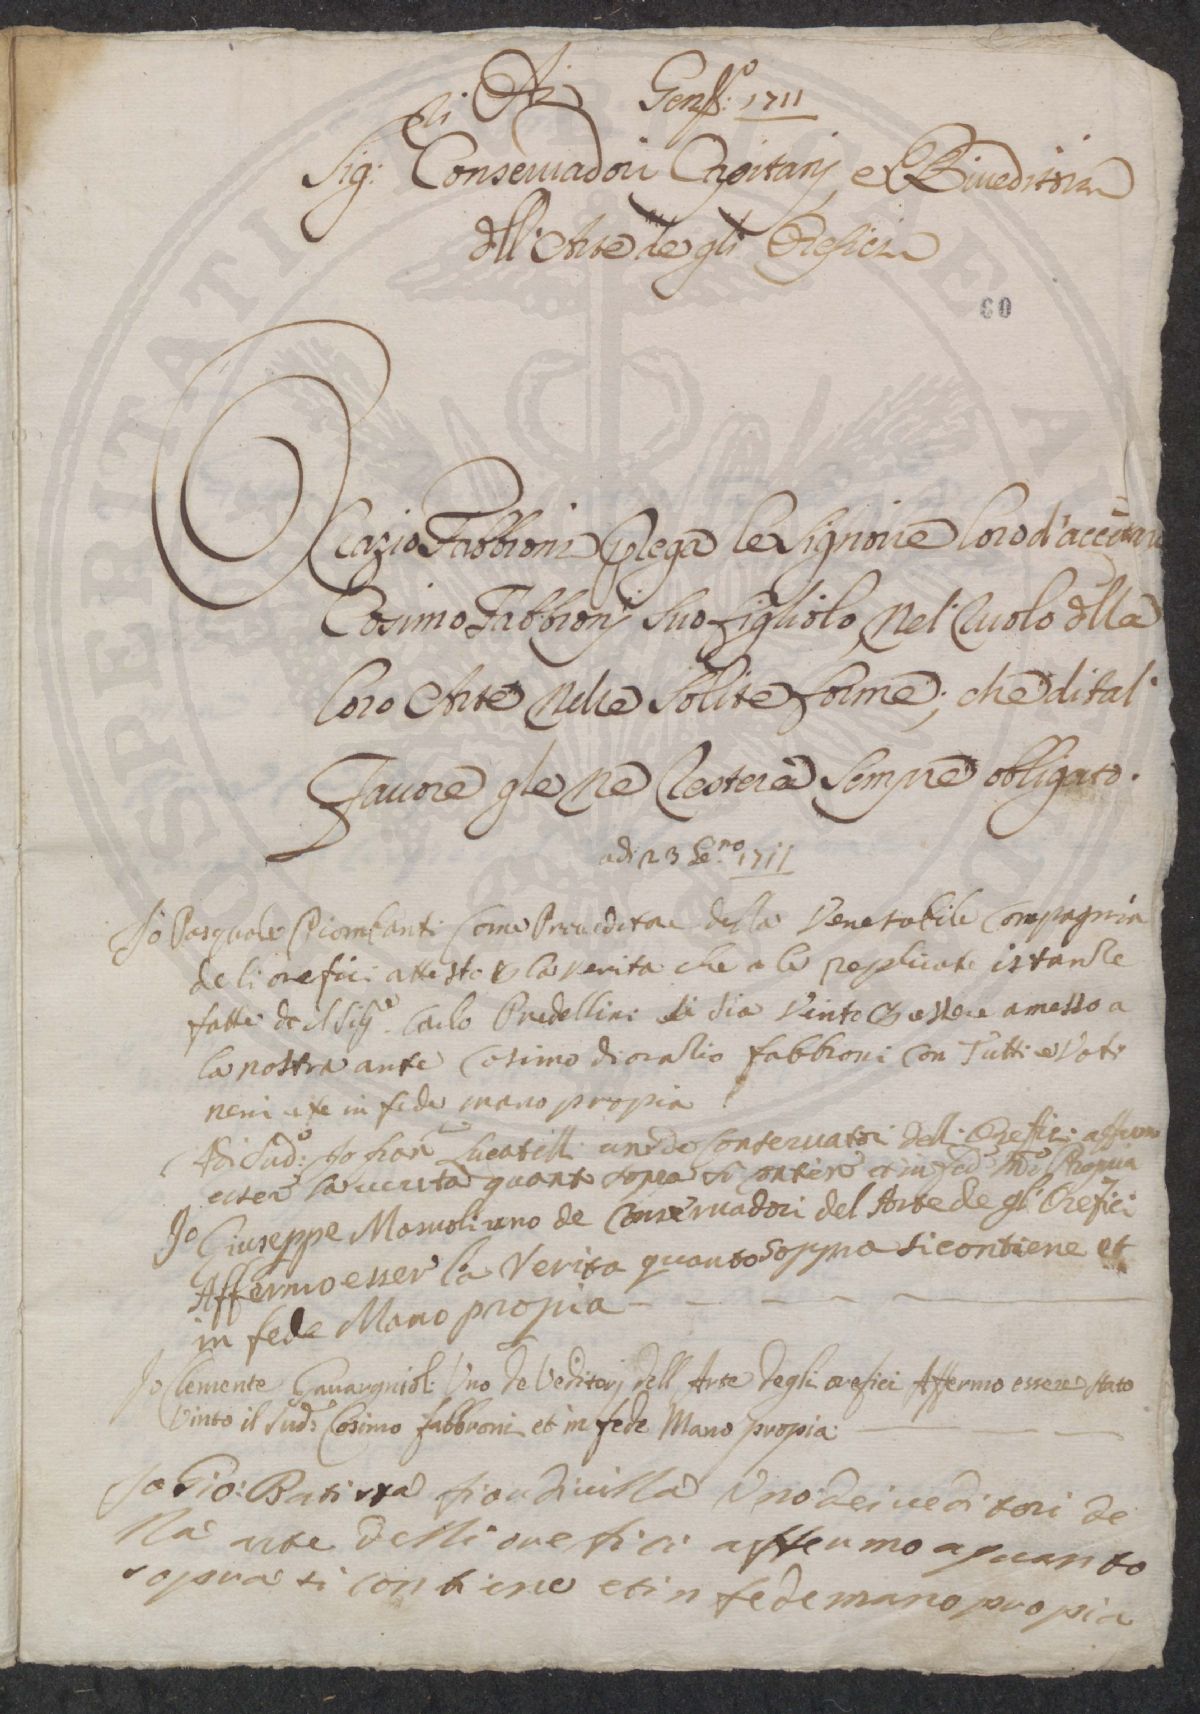 Gen: 1711
Sig: Conservadori Capitani, e Riveditori
dll' Arte de gli Orefici
60
Orazio Fabbroni prega le Signorie loro d'accettare
Cosimo Fabbronj suo figliolo, nel Ruolo dlla
loro Arte nelle Solite forme; che di tal
favore gle ne Resterà sempre obbligato.
adi 23 Ge.no 1711
Io Pasquale Piombanti Come Proveditore della Venerabile Compagnia
de li orefici attesto la verita che a le replicate istanze
fatte da il Sig.e Carlo Predellini si sia Vinto essere amesso a
la nostra arte Cosimo di orazio fabbroni Con Tutti e Voti
neri in fede mano propria
Adi Sud:o Io Fran Lucatelli uno de Conservatori dell: Orefici affermo
esser la verità quanto sopra si contiene et in fed Mo Propria
Io Giuseppe Masuoli uno de Conservadori del Arte de gl' Orefici
Affermo esser la verita quanto soppra si contiene et
in fede Mano propia
Io Clemente Uno de Veditorj dell Arte degli orefici Affermo essere stato
Vinto il Sud:o Cosimo fabbroni et in fede Mano propia
Io Gio: Batista fiandivilla Uno dei veditori de
lla arte delli orefici affermo a quanto
sopra si contiene et in fede mano propia
SOSPERITATI